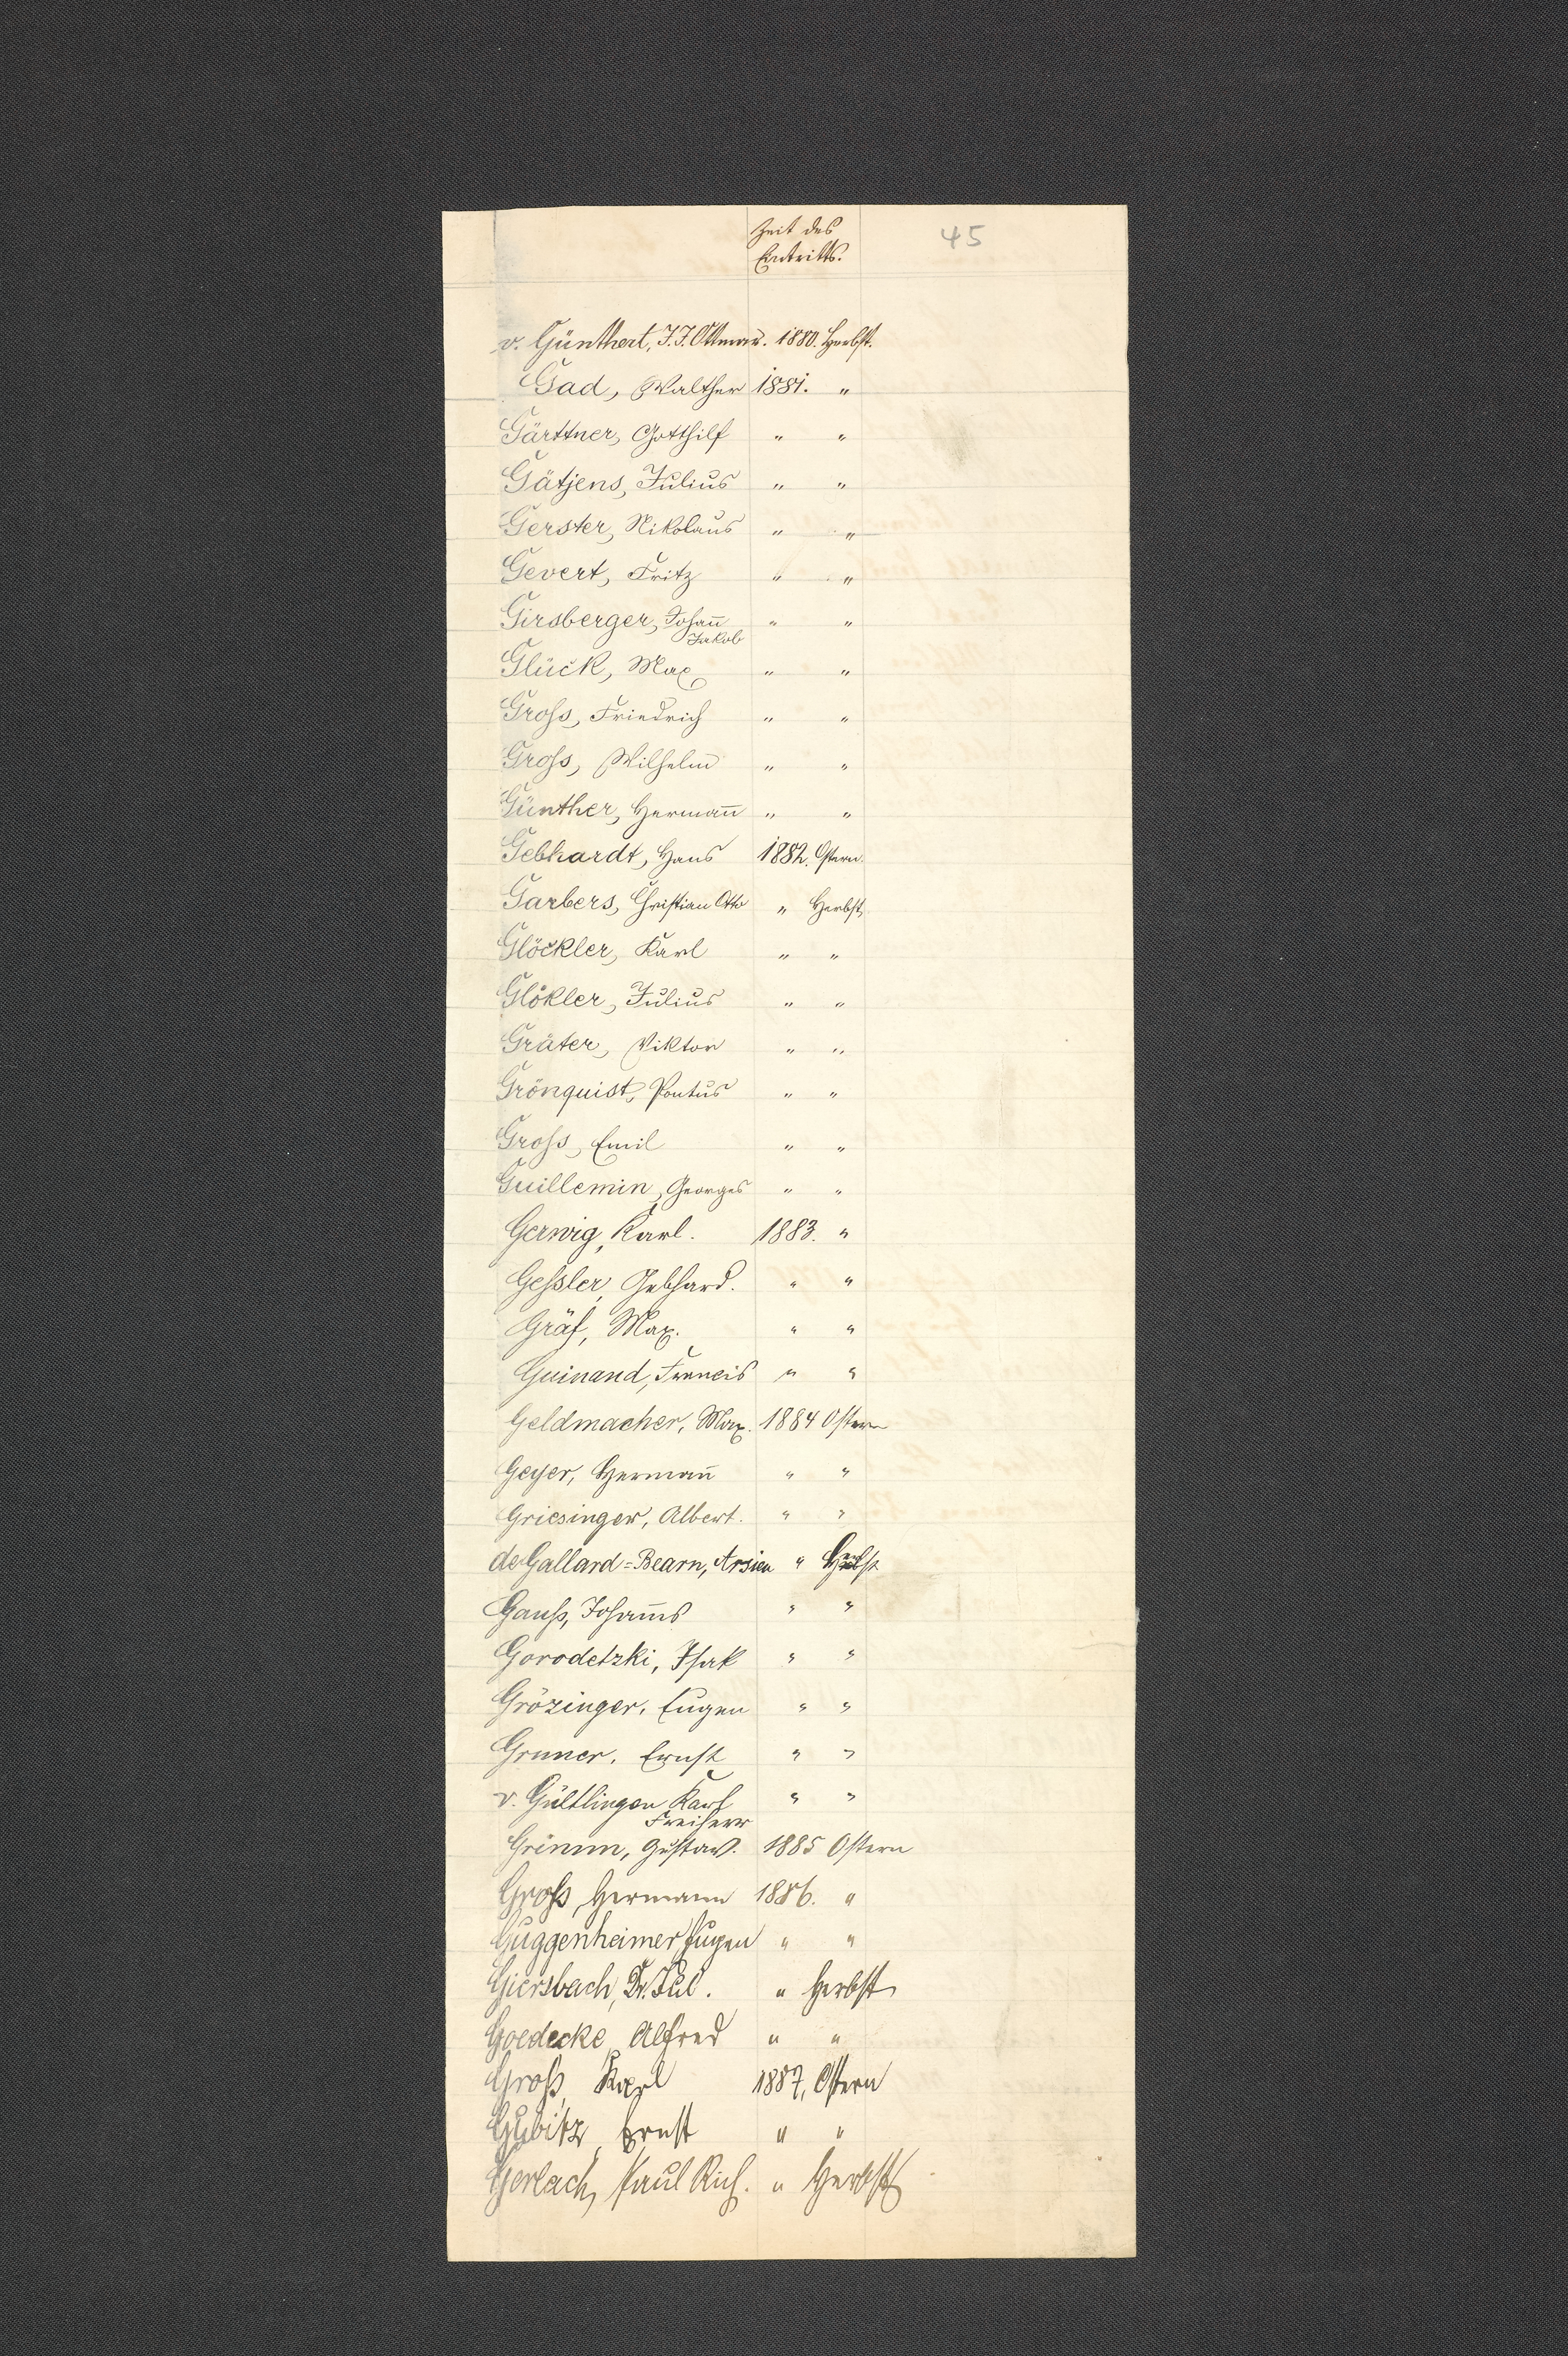 Zeit des
Eintritts.
45
v. Günthert, J. J. Ottmar. 1880. Herbst.
Gad, Walther 1881. "
Gärttner, Gotthilf " "
Gätjens, Julius " "
Gerster, Nikolaus " "
Gevert, Fritz " "
Girsberger, Johan̄ " "
Jakob
Glück, Max " "
Gross, Friedrich " "
Gross, Wilhelm " "
Günther, Herman̄ " "
Gebhardt, Hans 1882. Ostern.
Garbers, Christian Otto " Herbst
Glöckler, Karl " "
Glökler, Julius " "
Gräter, Viktor " "
Grönquist, Pontus " "
Gross, Emil " "
Guillemin, Georges " "
Gerwig, Karl. 1883. "
Gessler, Gebhard. " "
Gräf, Max. " "
Guinand, Francis " "
Geldmacher, Max. 1884 Ostern
Geyer, Herman̄ " "
Griesinger, Albert. " "
de Gallard=Bearn, " Herbst
Gauß, Johan̄es " "
Gorodetzki, Isak " "
Grözinger, Eugen " "
Gruner, Ernst " "
v. Gültlingen Karl " "
Freiherr
Grimm, Gustav. 1885 Ostern
Groß, Hermann 1886. "
Guggenheimer Eugen " "
Giersbach, Dr. Jul. " Herbst
Goedecke, Alfred " "
Groß, Karl 1887, Ostern
Gubitz, Ernst " "
Gerlach, Paul Rich. " Herbst